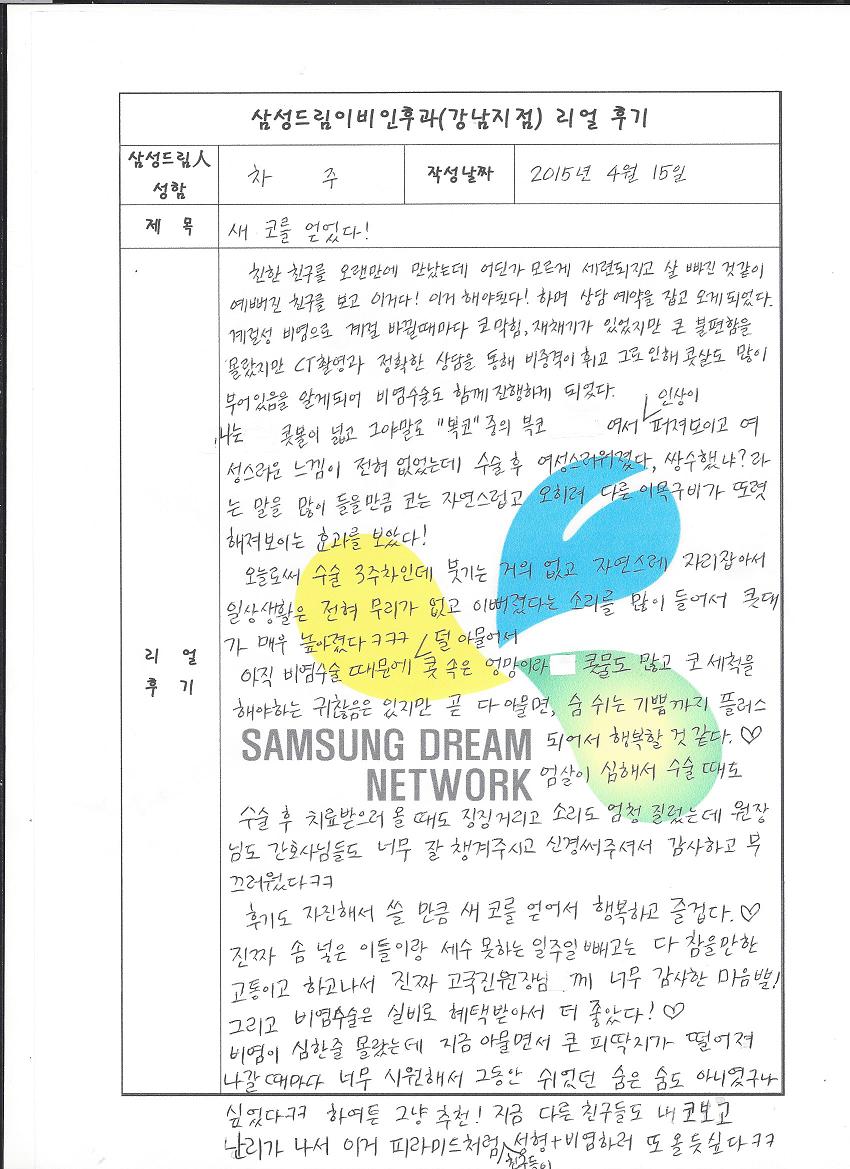 삼성드림이비인후과(강남지점) 리얼 후기
삼성드림人 성함
차 주
작성날짜
2015년 4월 15일
제 목
새 코를 얻었다!
리 얼 후 기
친한 친구를 오랜만에 만났는데 어딘가 모르게 세련되지고 살 빠진 것같이
예뻐진 친구를 보고 이거다! 이거 해야된다! 하며 상담 예약을 잡고 오게 되었다.
계절성 비염으로 계절 바뀔때마다 코막힘, 재채기가 있었지만 큰 불편함을
몰랐지만 CT촬영과 정확한 상담을 통해 비중격이 휘고 그로 인해 콧살도 많이
부어있음을 알게되어 비염수술도 함께 진행하게 되었다.
나는 콧볼이 넓고 그야말로 "복코" 중의 복코 여서 인상이 퍼져보이고 여
성스러운 느낌이 전혀 없었는데 수술 후 여성스러워졌다, 쌍수했냐? 라
는 말을 많이 들을만큼 코는 자연스럽고 오히려 다른 이목구비가 또렷
해져보이는 효과를 보았다!
오늘로써 수술 3주차인데 붓기는 거의 없고 자연스레 자리잡아서
일상생활은 전혀 무리가 없고 이뻐졌다는 소리를 많이 들어서 콧대
가 매우 높아졌다 ㅋㅋㅋ
아직 비염수술 때문에 덜 아물어서 콧 속은 엉망이라 콧물도 많고 코 세척을
해야하는 귀찮음은 있지만 곧 다 아물면, 숨 쉬는 기쁨까지 플러스
되어서 행복할 것 같다. ♡
SAMSUNG DREAM
NETWORK
엄살이 심해서 수술 때도
수술 후 치료받으러 올 때도 징징거리고 소리도 엄청 질렀는데 원장
님도 간호사님들도 너무 잘 챙겨주시고 신경써주셔서 감사하고 부
끄러웠다ㅋㅋ
후기도 자진해서 쓸 만큼 새 코를 얻어서 행복하고 즐겁다. ♡
진짜 솜 넣은 이틀이랑 세수 못하는 일주일 빼고는 다 참을만한
고통이고 하고나서 진짜 고국진원장님 께 너무 감사한 마음뿐!
그리고 비염수술은 실비로 혜택받아서 더 좋았다! ♡
비염이 심한줄 몰랐는데 지금 아물면서 큰 피딱지가 떨어져
나갈 때마다 너무 시원해서 그동안 쉬었던 숨은 숨도 아니였구나
싶었다ㅋㅋ 하여튼 그냥 추천! 지금 다른 친구들도 내 코보고
난리가 나서 이거 피라미드처럼 친구들이 성형+비염하러 또 올듯싶다ㅋㅋ